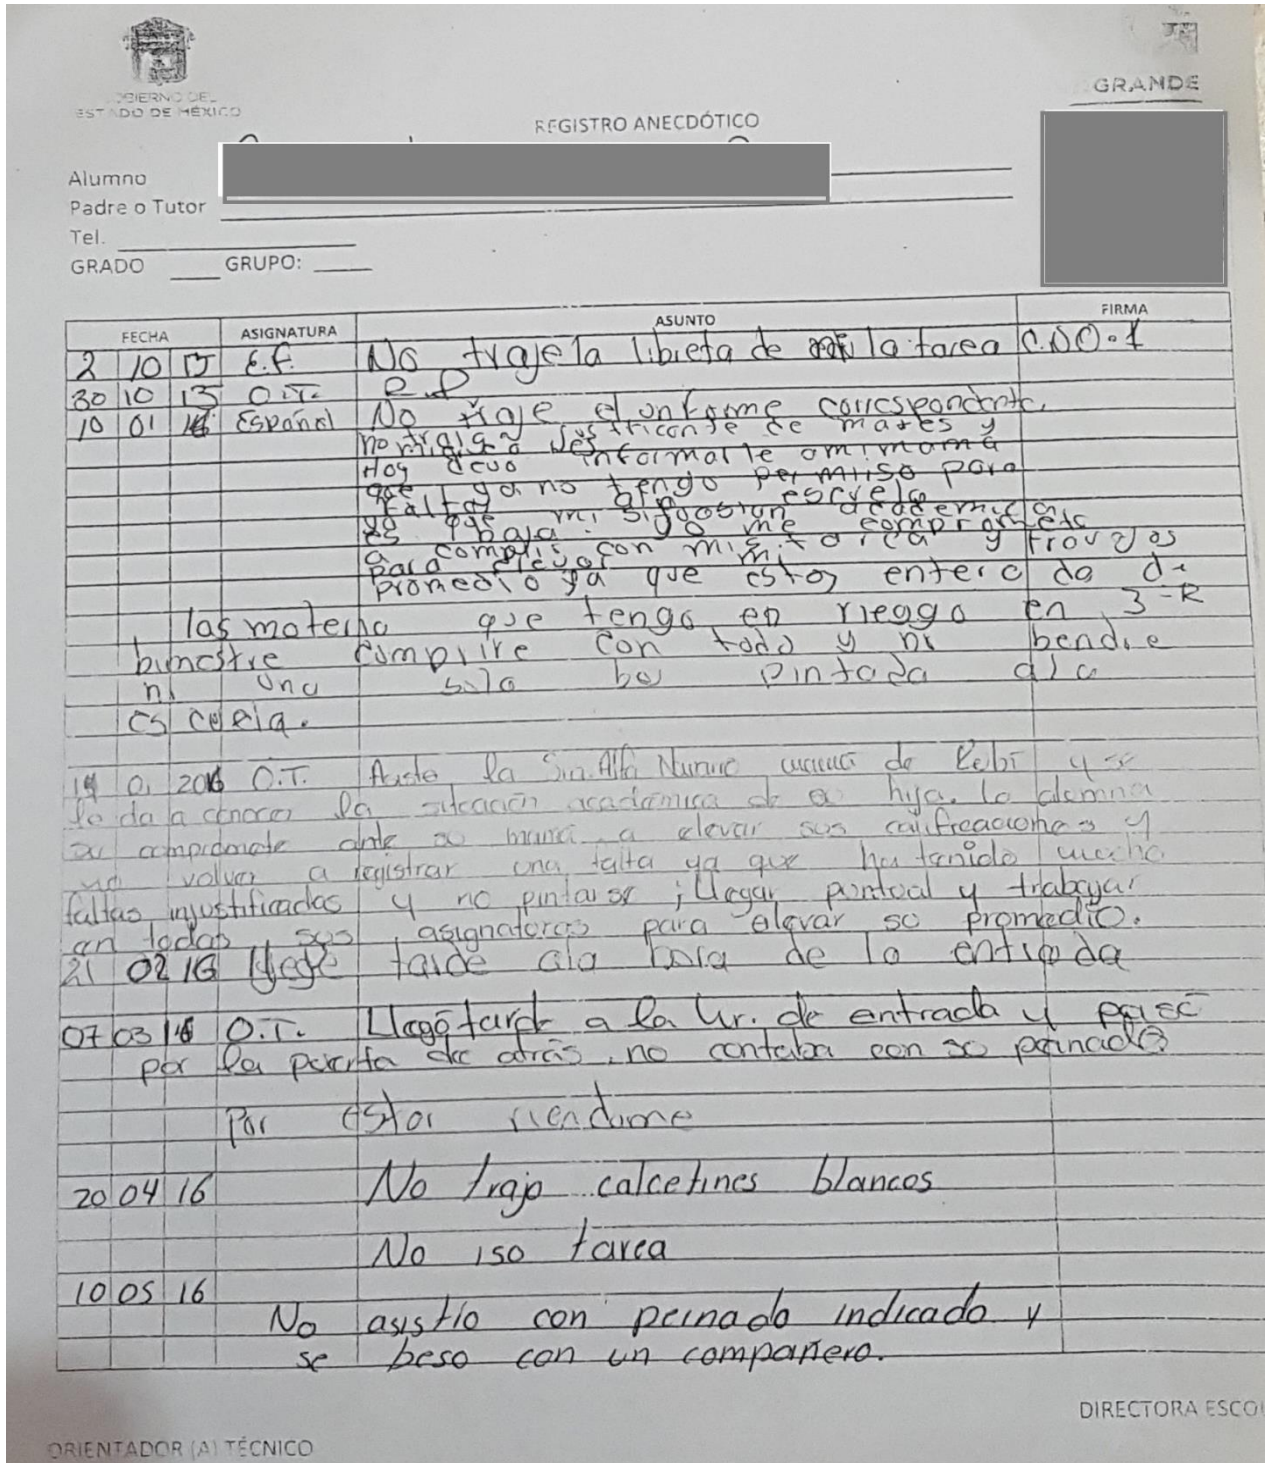 GOBIERNO DEL
ESTADO DE MÉXICO
GRANDE
REGISTRO ANECDÓTICO
Alumno
Padre o Tutor
Tel.
GRADO GRUPO:
FECHA ASIGNATURA ASUNTO FIRMA
2 10 15 E.F. No traje la libreta de la tarea
30 10 15 O.T.
10 01 16 Español No traje el informe correspondente.
no traiga justicante de martes y
Hoy devo informarle a mi mama
que ya no tengo permiso para
faltar ala escuela
ya que mi academica
es baja. yo me comprometo
a complir con mis tarea y
para elevar mi
promedio ya que estoy entera da de
las materia que tengo en riesgo en 3-R
bimestre cumplire con todo y ni bendre
ni una sola bes pintada ala
escuela.
19 01 2016 O.T. Asiste la Sra. mamá de y se
le da a conocer la situación académica de su hija. la alumna
se compromete ante su mamá a elevar sus calificaciones y
no volver a registrar una falta ya que ha tenido mucha
faltas injustificadas y no pintarse ; llegar puntual y trabajar
en todas sus asignaturas para elevar so promedio.
21 02 16 llege tarde ala hora de la entrada
07 03 16 O.T. Llegó tarde a la hr. de entrada y pasó
por la puerta de atrás, no contaba con so peinado
Por estar riendome
20 04 16 No trajo calcetines blancos
No iso tarea
10 05 16
No asistio con peinado indicado y
se beso con un compañero.
DIRECTORA ESCO
ORIENTADOR (A) TÉCNICO